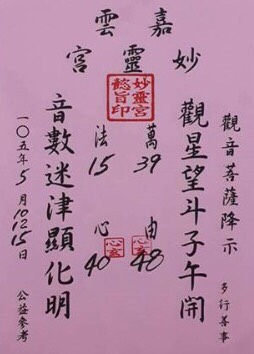 嘉雲宮
妙靈
妙靈宮懿旨印
觀音菩薩降示
多行善事
觀星望斗子午開
萬 39
由 48
心玄
法 15
心 40
心玄
音數迷津顯化明
一〇五年5月10 12 15日
公益參考